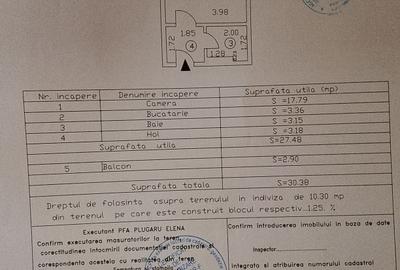 3.98
1.85
2.00
1.72
4
3
1.72
1.28
Nr. incapere Denumire incapere Suprafata utila (mp)
1 Camera S =17.79
2 Bucatarie S =3.36
3 Baie S =3.15
4 Hol S =3.18
Suprafata utila S=27.48
5 Balcon S=2.90
Suprafata totala S=30.38
Dreptul de folosinta asupra terenului in indiviza de 10.30 mp
din terenul pe care este construit blocul respectiv...1.25. %
Executant PFA PLUGARU ELENA
Confirm introducerea imobilului in baza de date
Confirm executarea masuratorilor la teren,
corectitudinea intocmirii documentatiei cadastrale si
corespondenta acesteia cu realitatea din teren
Inspector
integrata si atribuirea numarului cadastral